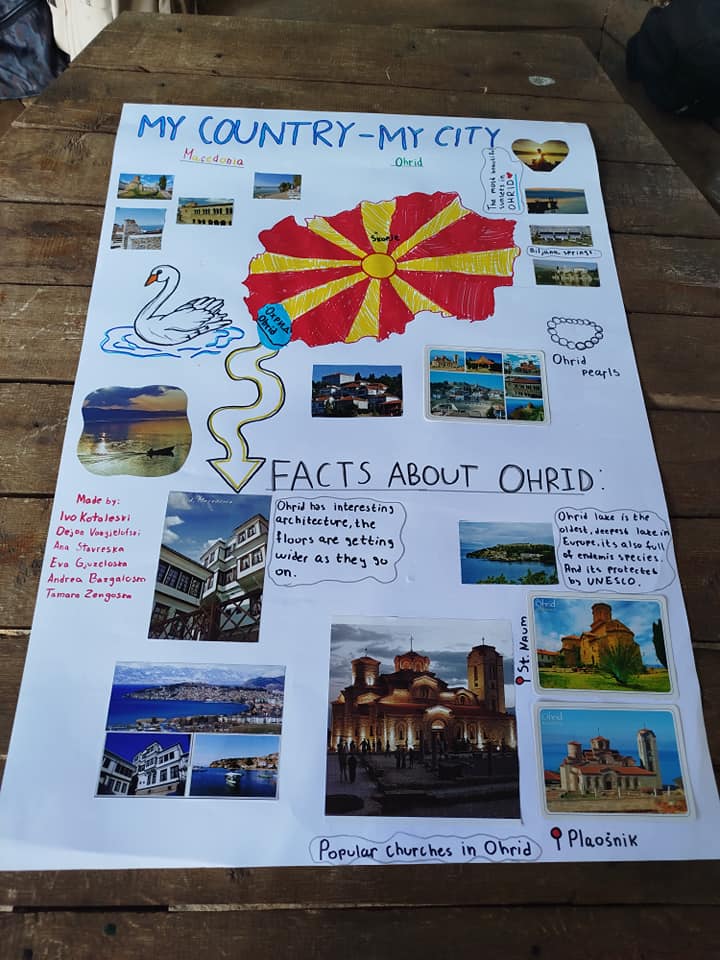 MY COUNTRY-MY CITY
Macedonia
Ohrid
The most beautiful
sunsets in
OHRID
Skopje
Biljana springs
Охрид
Ohrid
Ohrid
pearls
FACTS ABOUT OHRID:
Made by:
Ivo Kotaleski
Ana Stavreska
Eva Gjuzeloska
Andrea Bazgaloska
Tamara Zengoska
Ohrid has interesting
architecture, the
floors are getting
wider as they go
on.
Ohrid lake is the
oldest, deepest lake in
Europe. its also full
of endemic species.
And its protected
by UNESCO.
St. Naum
Ohrid
Ohrid
Plaošnik
Popular churches in Ohrid